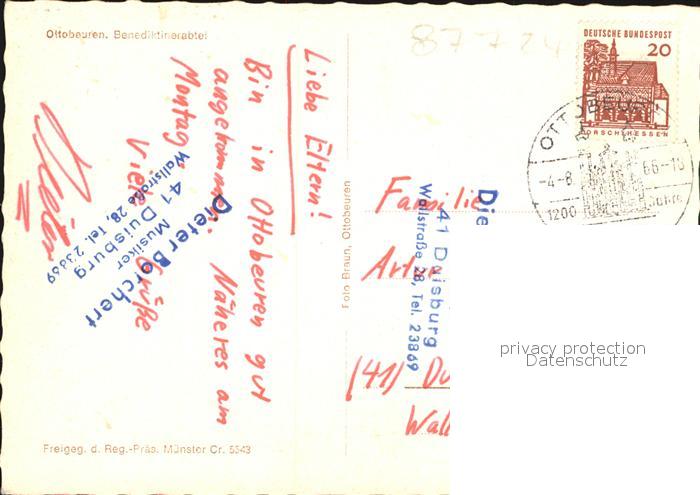 Ottobeuren, Benediktinerabtei
Liebe Eltern!
Bin in Ottobeuren gut
angekommen. Näheres am
Montag.
Viele Grüße
Dieter
Dieter Borchert
Musiker
41 Duisburg
Wallstraße 28, Tel. 23869
Freigeg. d. Reg.-Präs. Münster Cr. 5543
Foto Braun, Ottobeuren
DEUTSCHE BUNDESPOST
20
LORSCH/HESSEN
OTTOBEUREN
-4-8 66-18
1200 Jahre
87724
Familie
Die
41 Duisburg
Wallstraße 28, Tel. 23869
(41) Du
Wall
privacy protection
Datenschutz